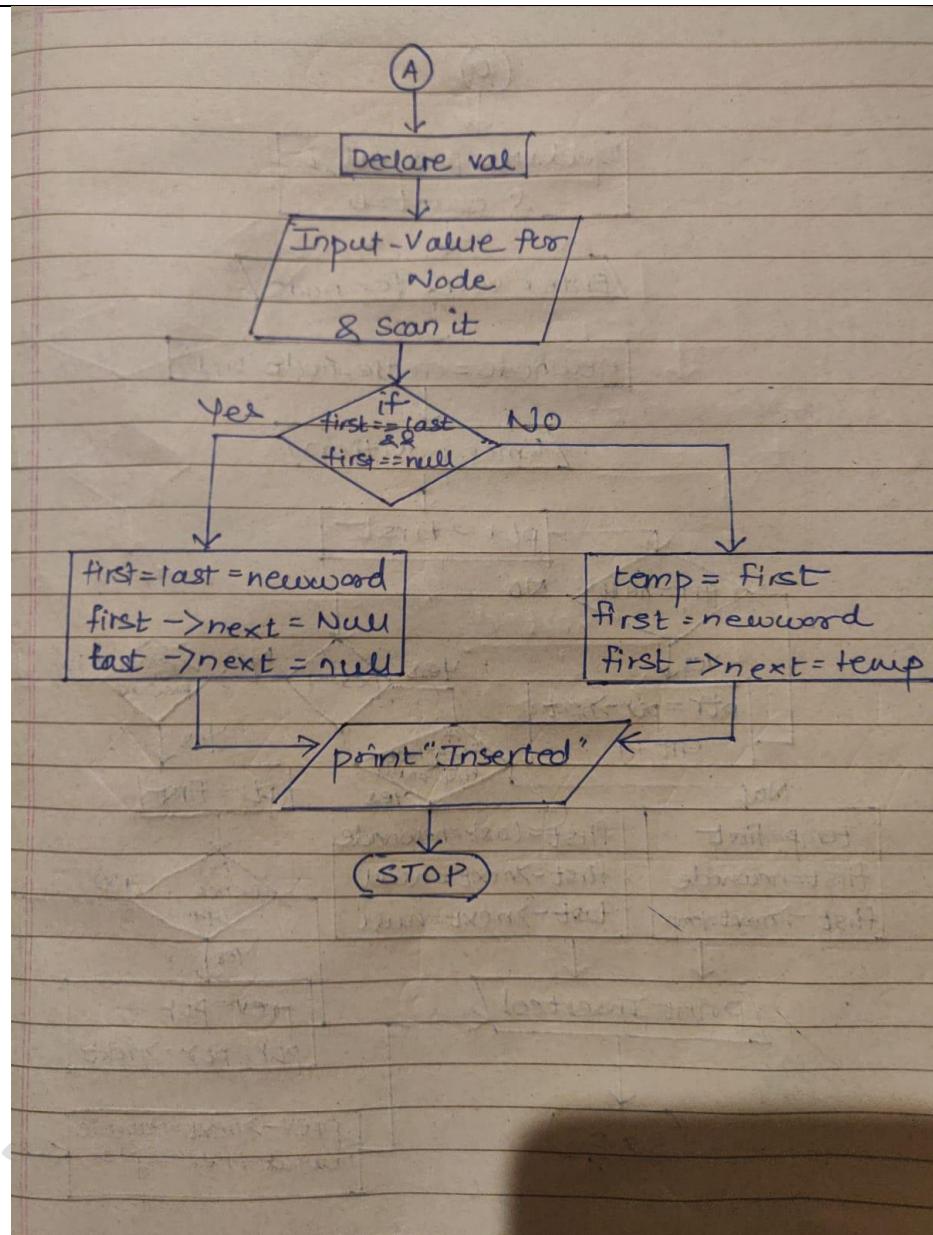 A
Declare val
Input-Value for
Node
& scan it
if
first==last
&&
first==null
Yes
No
first=last=newword
first->next=Null
last->next=null
temp=first
first=newword
first->next=temp
print":Inserted"
STOP